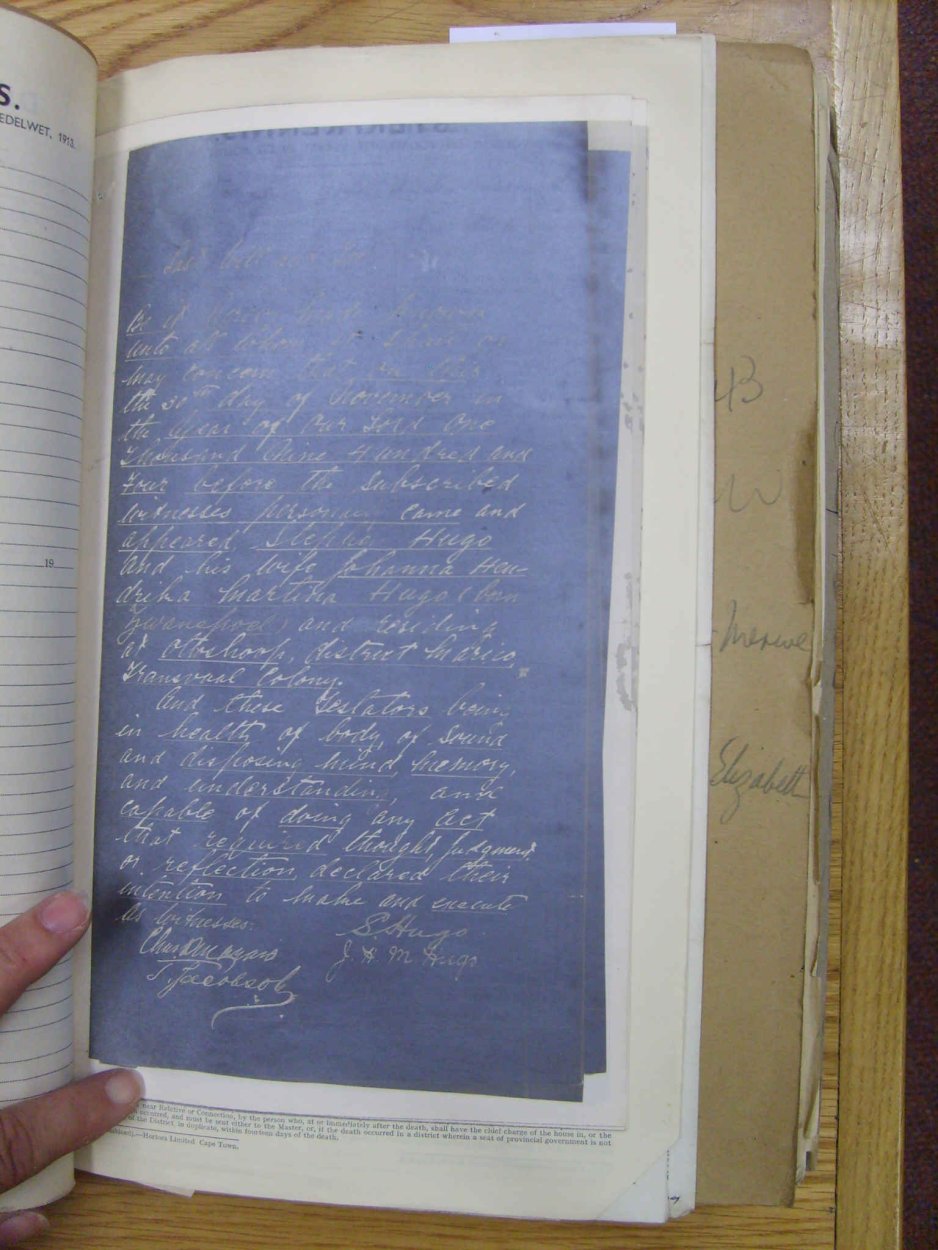 S.
EDELWET, 1913.
19
Last Will and
Be it hereby made known
unto all whom it shall or
may concern that on this
the 30th day of November in
the Year of Our Lord One
Thousand Nine Hundred and
Four before the subscribed
witnesses personally came and
appeared Stephs. Hugo
and his wife Johanna Hen-
drika Martina Hugo (born
Swanepoel) and residing
at Ottoshoop, district Marico,
Transvaal Colony.
And these Testators being
in health of body, of sound
and disposing mind, memory,
and understanding, and
capable of doing any act
that required thought, judgment
or reflection, declared their
intention to make and execute
As witnesses:
S. Hugo
J. H. M. Hugo
T. Jacobsohn
43
W
Merwe
Elizabeth
near Relative or Connection, by the person who, at or immediately after the death, shall have the chief charge of the house in, or the
occurred, and must be sent either to the Master, or, if the death occurred in a district wherein a seat of provincial government is not
of the District, in duplicate, within fourteen days of the death.
—Hortors Limited Cape Town.